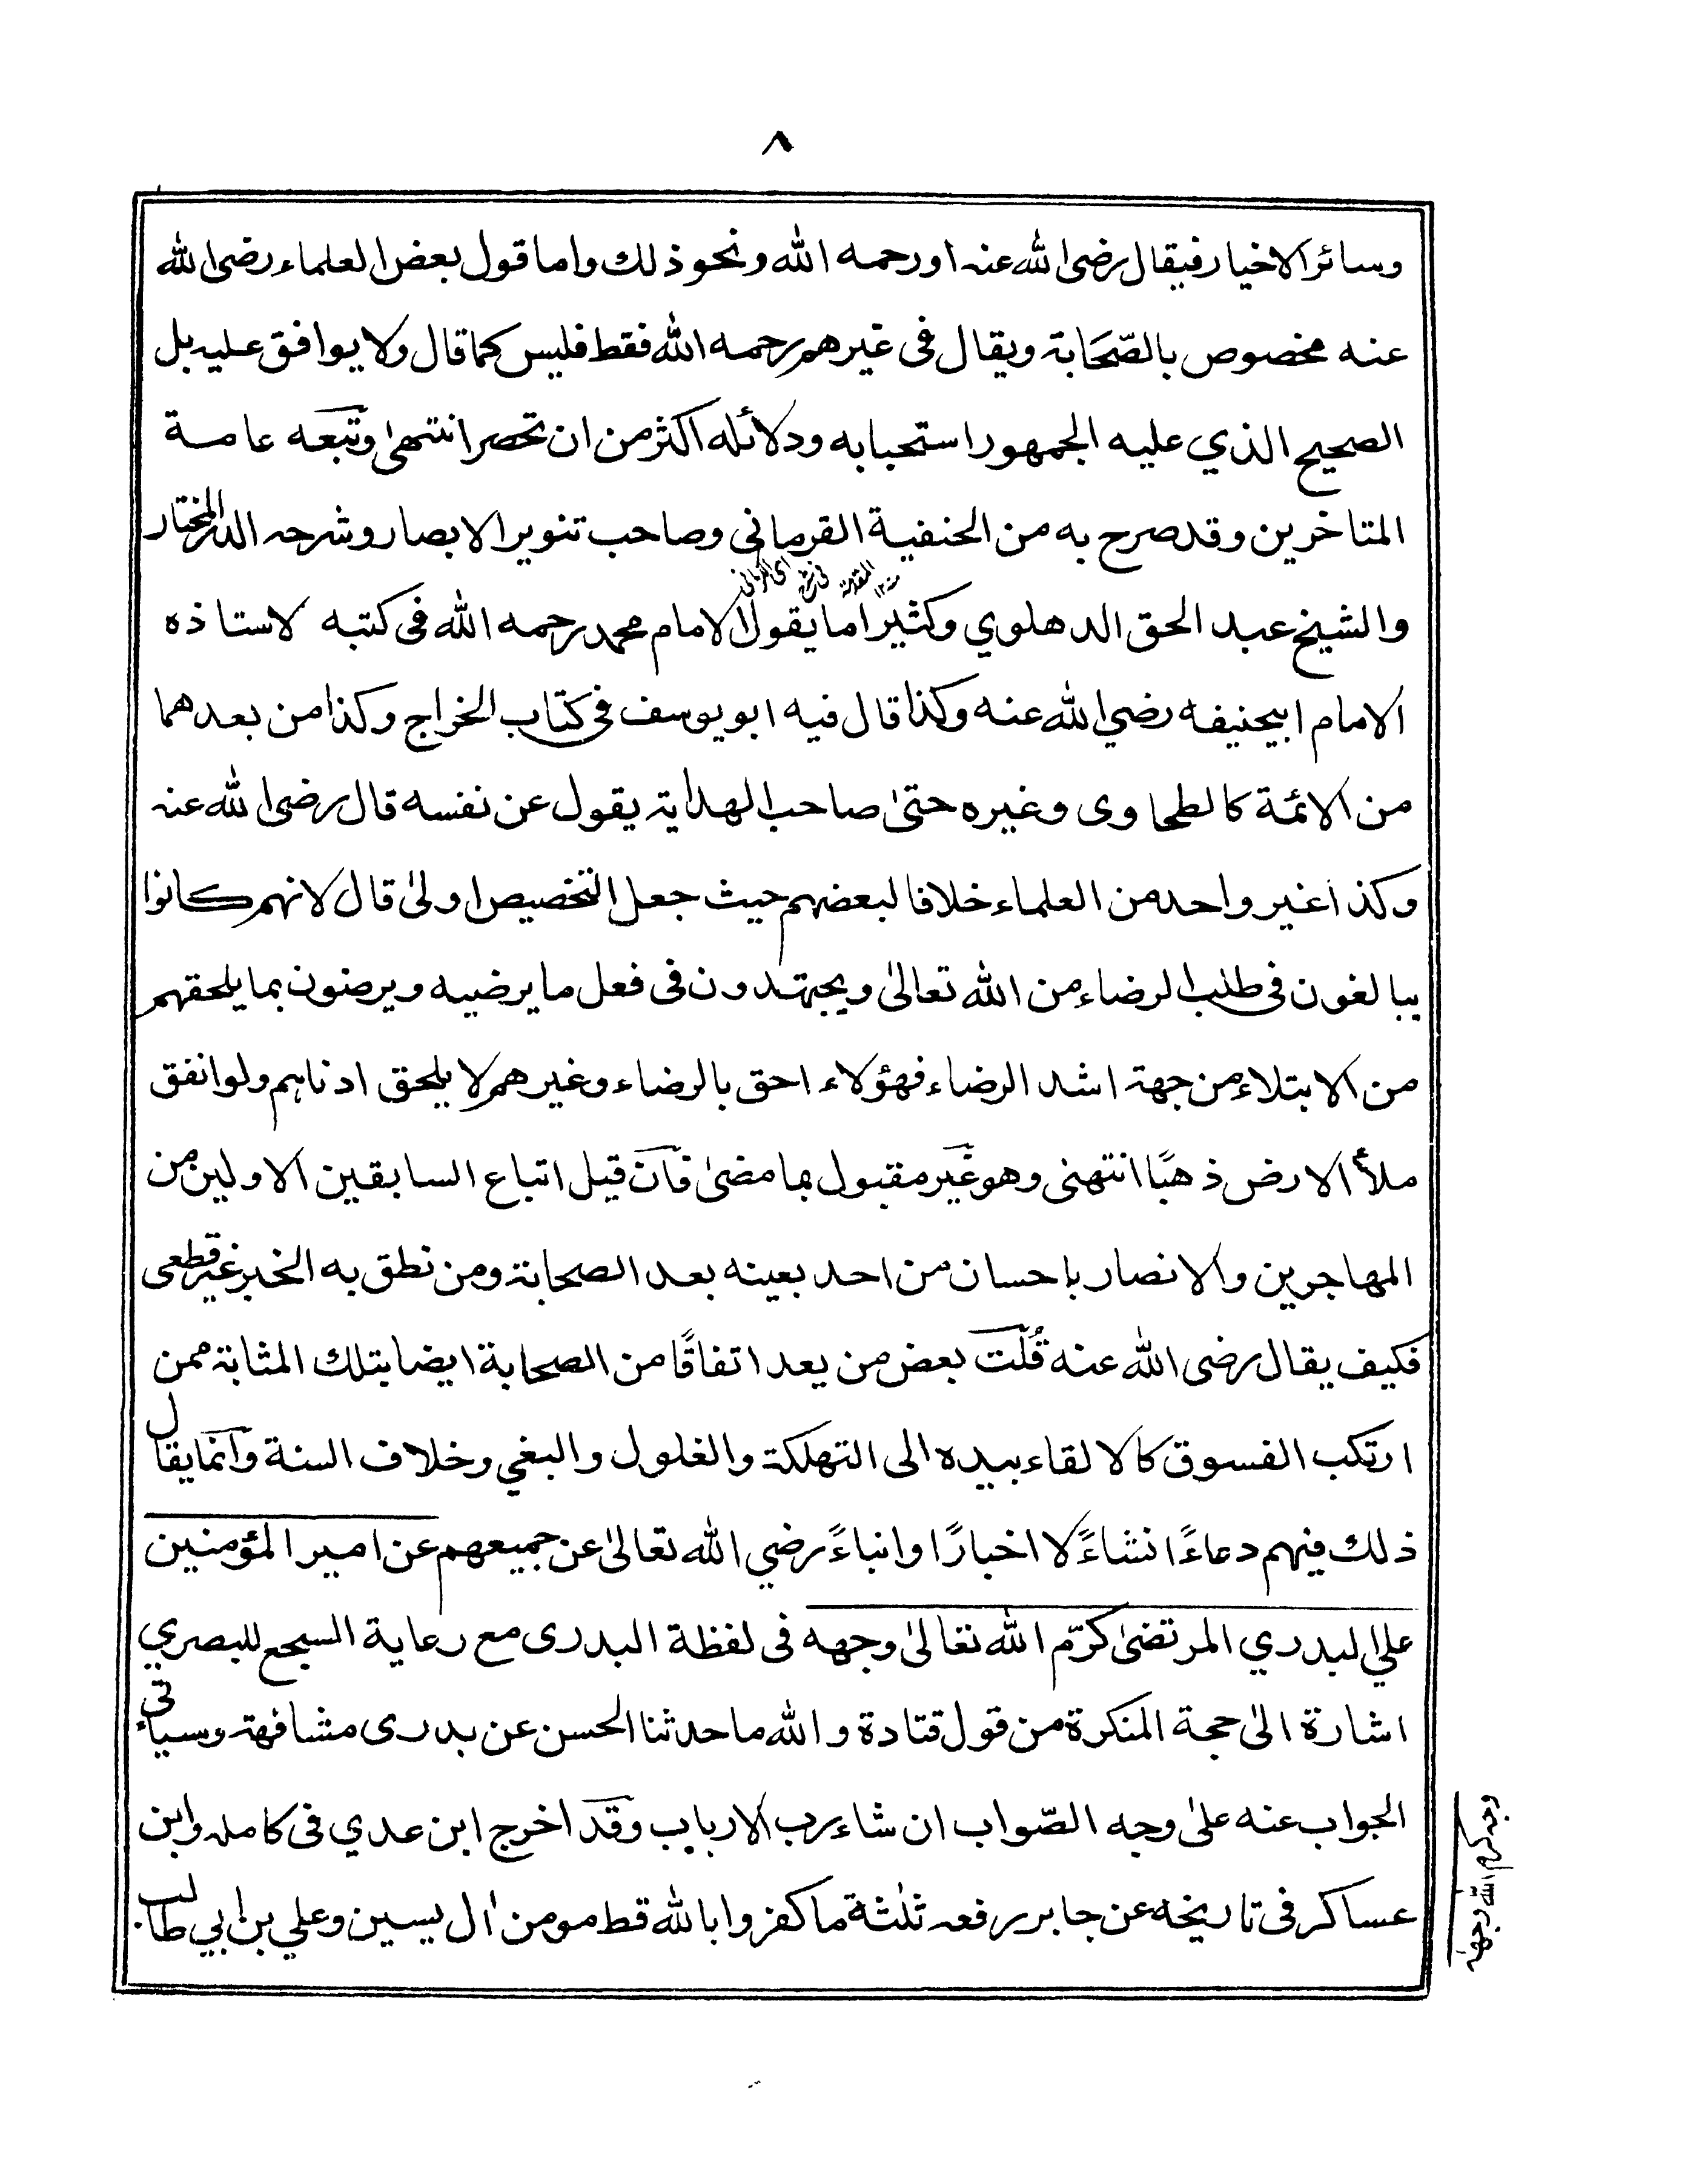 ٨
وسائر الاخيار فيقال رضى الله عنه او رحمه الله ونحو ذلك واما قول بعض العلماء رضى الله
عنه مخصوص بالصّحَابة ويقال فى غيرهم رحمه الله فقط فليس كما قال ولا يوافق عليه بل
الصحيح الذي عليه الجمهور استحبابه ودلائله اكثر من ان تحصر انتهىٰ وتبعه عامة
المتاخرين وقد صرح به من الحنفية القرمانى وصاحب تنوير الابصار وشرحه الدر المختار
اى الكرمانى فى شرح المقدمة منه ١٢
والشيخ عبد الحق الدهلوي وكثيرا ما يقول الامام محمد رحمه الله فى كتبه لاستاذه
الامام ابيحنيفه رضي الله عنه وكذا قال فيه ابو يوسف فى كتاب الخراج وكذا من بعدهما
من الائمة كالطحاوى وغيره حتىٰ صاحب الهداية يقول عن نفسه قال رضى الله عنه
وكذا غير واحد من العلماء خلافا لبعضهم حيث جعل التخصيص اولىٰ قال لانهم كانوا
يبالغون فى طلب الرضاء من الله تعالىٰ ويجتهدون فى فعل ما يرضيه ويرضون بما يلحقهم
من الابتلاء من جهة اشد الرضاء فهؤلاء احق بالرضاء وغيرهم لا يلحق ادناهم ولو انفق
ملأ الارض ذهبًا انتهىٰ وهو غير مقبول بما مضىٰ فان قيل اتباع السابقين الاولين من
المهاجرين والانصار باحسان من احد بعينه بعد الصحابة ومن نطق به الخبر غير قطعى
فكيف يقال رضى الله عنه قُلت بعض من يعد اتفاقًا من الصحابة ايضا بتلك المثابة ممن
ارتكب الفسوق كالالقاء بيده الى التهلكة والغلول والبغي وخلاف السنة وانما يقال
ذلك فيهم دعاءً انشاءً لا اخبارًا وانباءً رضي الله تعالىٰ عن جميعهم عن امير المؤمنين
علي البدري المرتضىٰ كرّم الله تعالىٰ وجهه فى لفظة البدرى مع رعاية السجع للبصري
اشارة الىٰ حجة المنكرة من قول قتادة والله ما حدثنا الحسن عن بدرى مشافهة وسياتى
الجواب عنه علىٰ وجه الصّواب ان شاء رب الارباب وقد اخرج ابن عدي فى كامله وابن
عساكر فى تاريخه عن جابر رفعه ثلٰثة ما كفروا بالله قط مومن اٰل يسين وعلي بن ابي طالب
وجه كرم الله وجهه